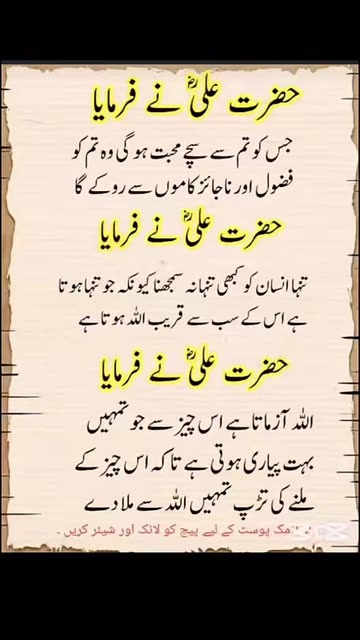 حضرت علیؓ نے فرمایا
جس کو تم سے سچے محبت ہو گی وہ تم کو
فضول اور ناجائز کاموں سے روکے گا
حضرت علیؓ نے فرمایا
تنہا انسان کو کبھی تنہا نہ سمجھنا کیونکہ جو تنہا ہوتا
ہے اس کے سب سے قریب اللہ ہوتا ہے
حضرت علیؓ نے فرمایا
اللہ آزماتا ہے اس چیز سے جو تمہیں
بہت پیاری ہوتی ہے تاکہ اس چیز کے
ملنے کی تڑپ تمہیں اللہ سے ملا دے
پوسٹ کے لیے پیج کو لائک اور شیئر کریں ۔